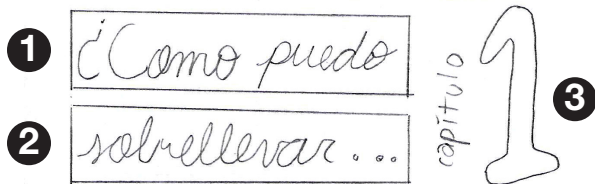 1 ¿Como puedo
2 sobrellevar...
capítulo 1
3